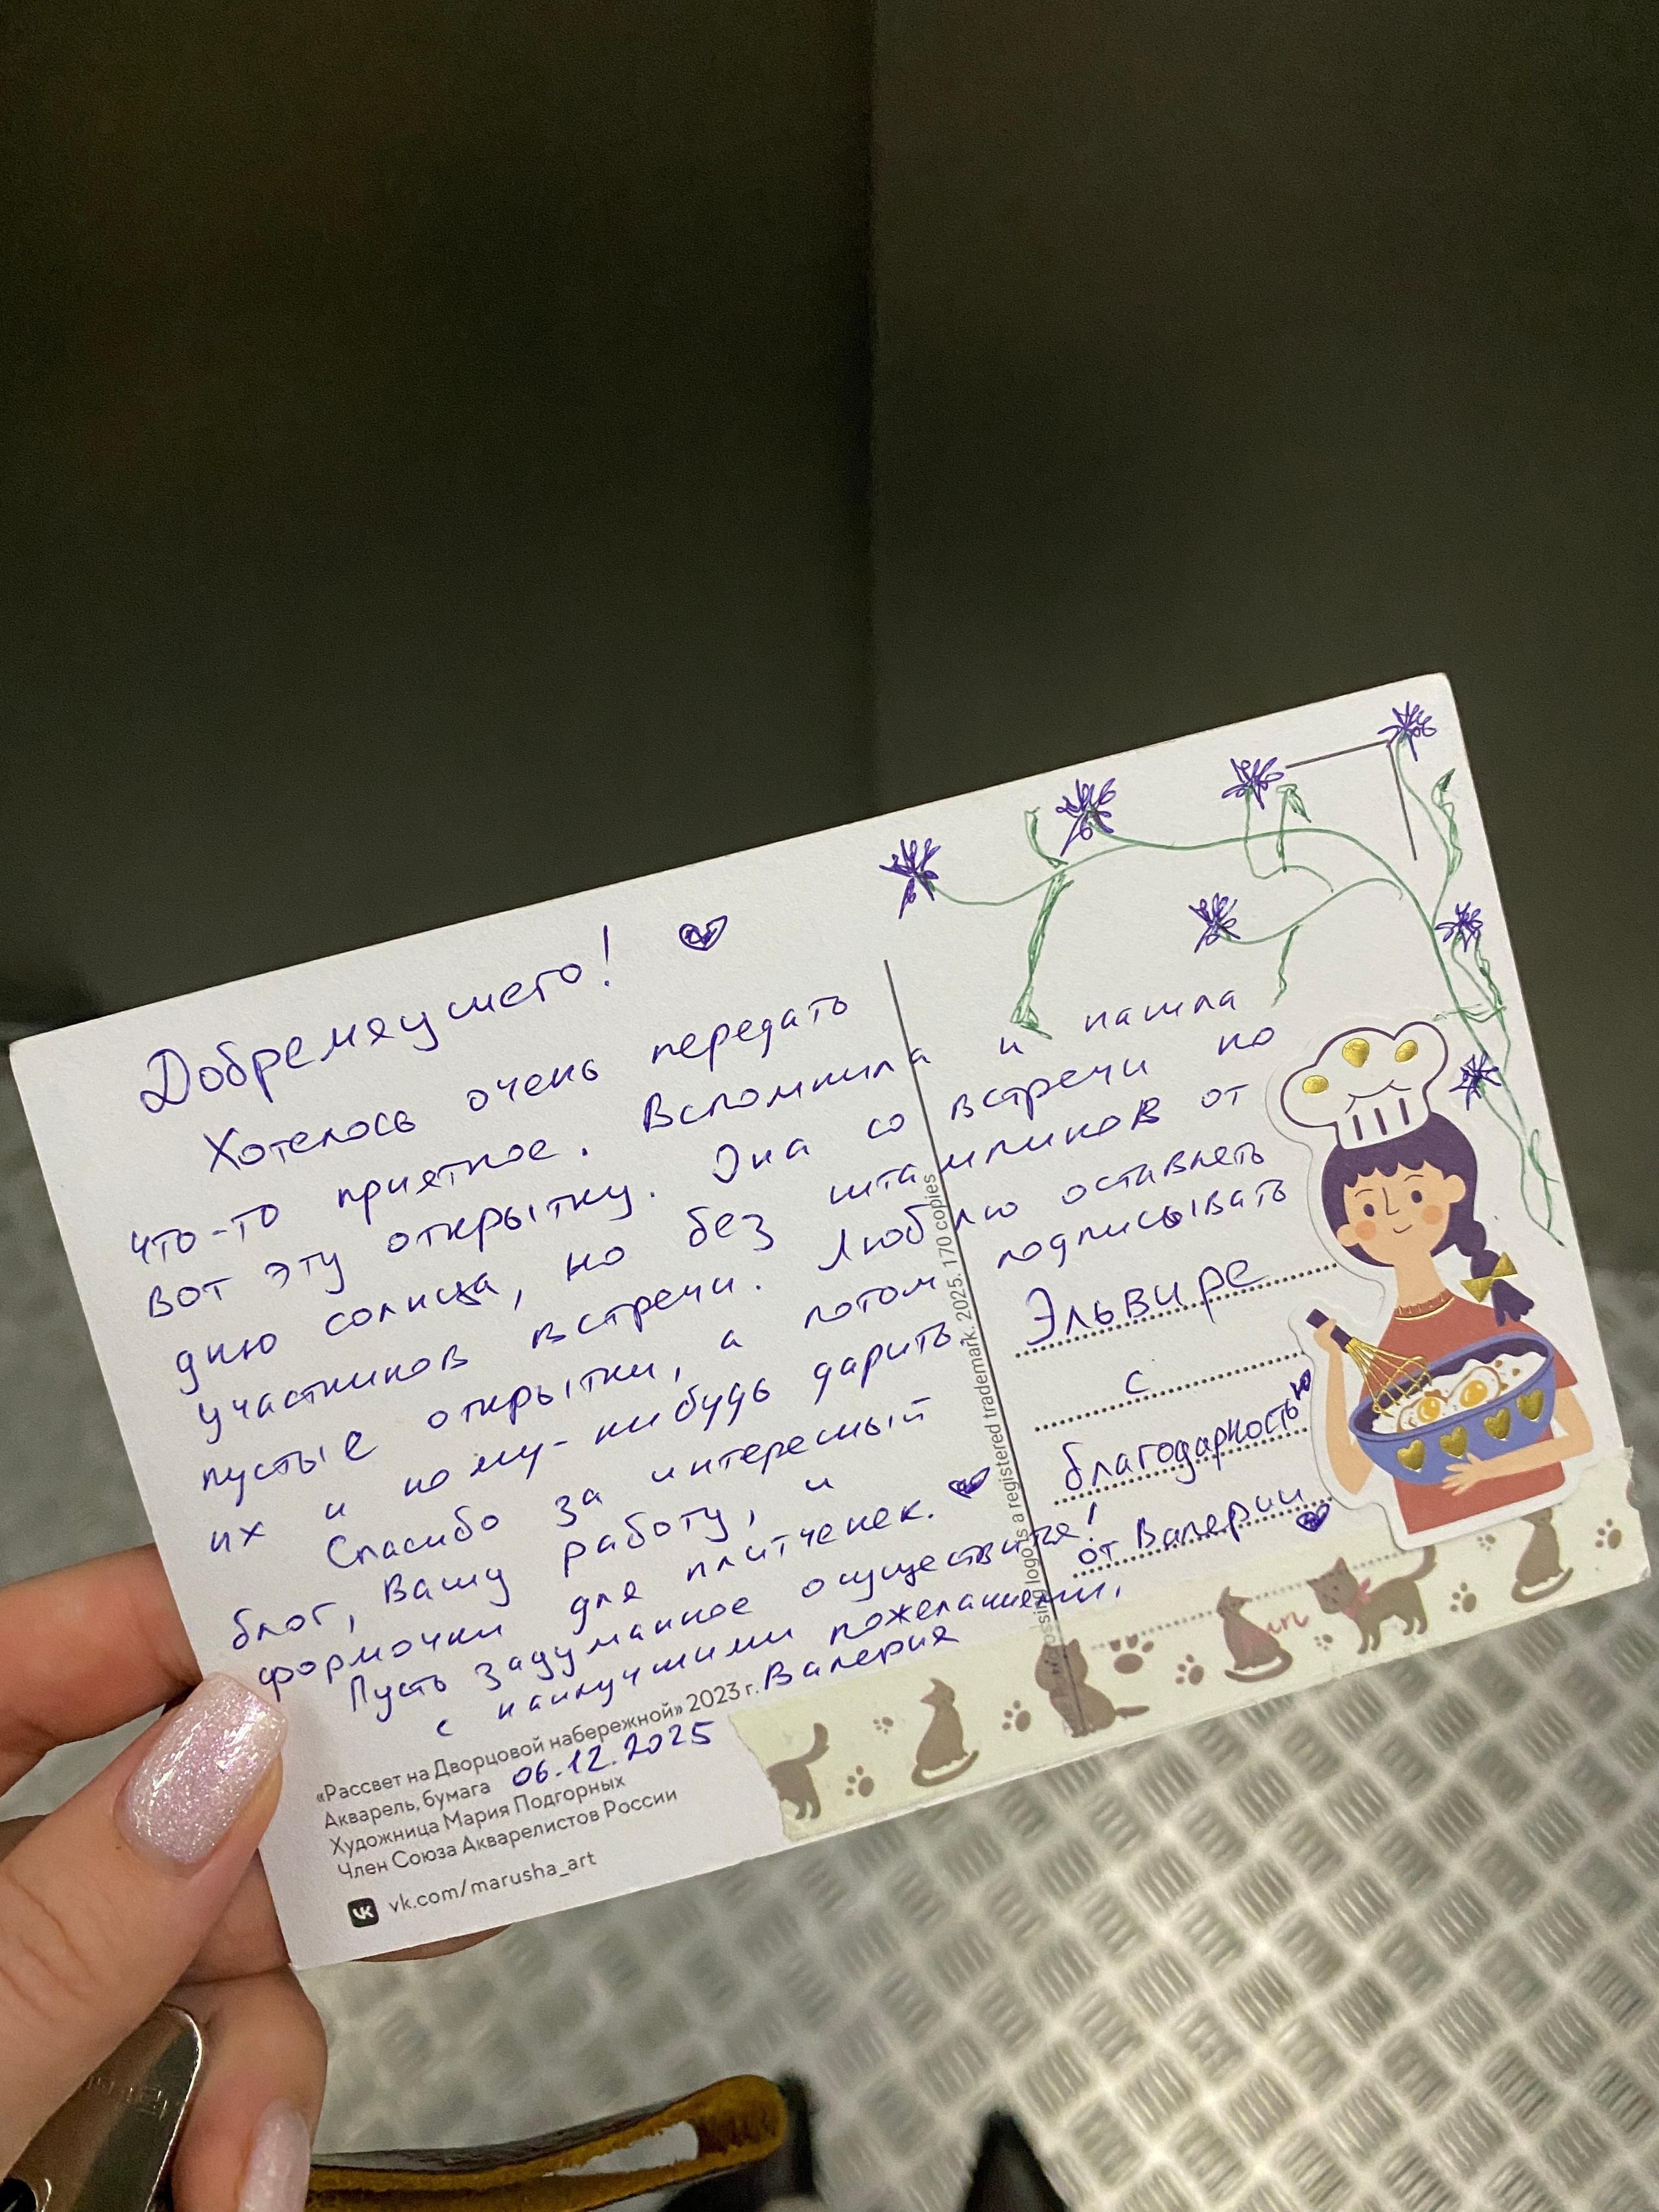 Добремяушего!
Хотелось очень передать
что-то приятное. Вспомнила и нашла
вот эту открытку. Она со встречи ко
дню солнца, но без штампиков от
участников встречи. Люблю оставлять
пустые открытки, а потом подписывать
их и кому-нибудь дарить.
Спасибо за интересный
блог, Вашу работу, и
формочки для плитченек.
Пусть задуманное осуществится!
с наилучшими пожеланиями,
Валерия
06.12.2025
«Рассвет на Дворцовой набережной» 2023 г.
Акварель, бумага
Художница Мария Подгорных
Член Союза Акварелистов России
vk.com/marusha_art
logo is a registered trademark. 2025. 170 copies
Эльвире
с
благодарностью
от Валерии